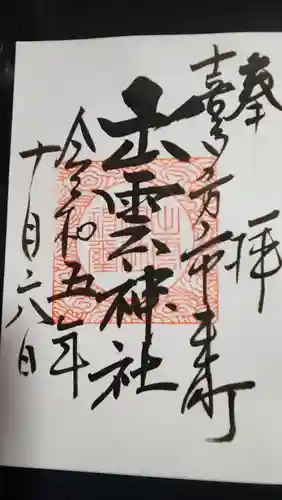 奉拝
喜多方市寺町
出雲神社
令和五年
十月六日